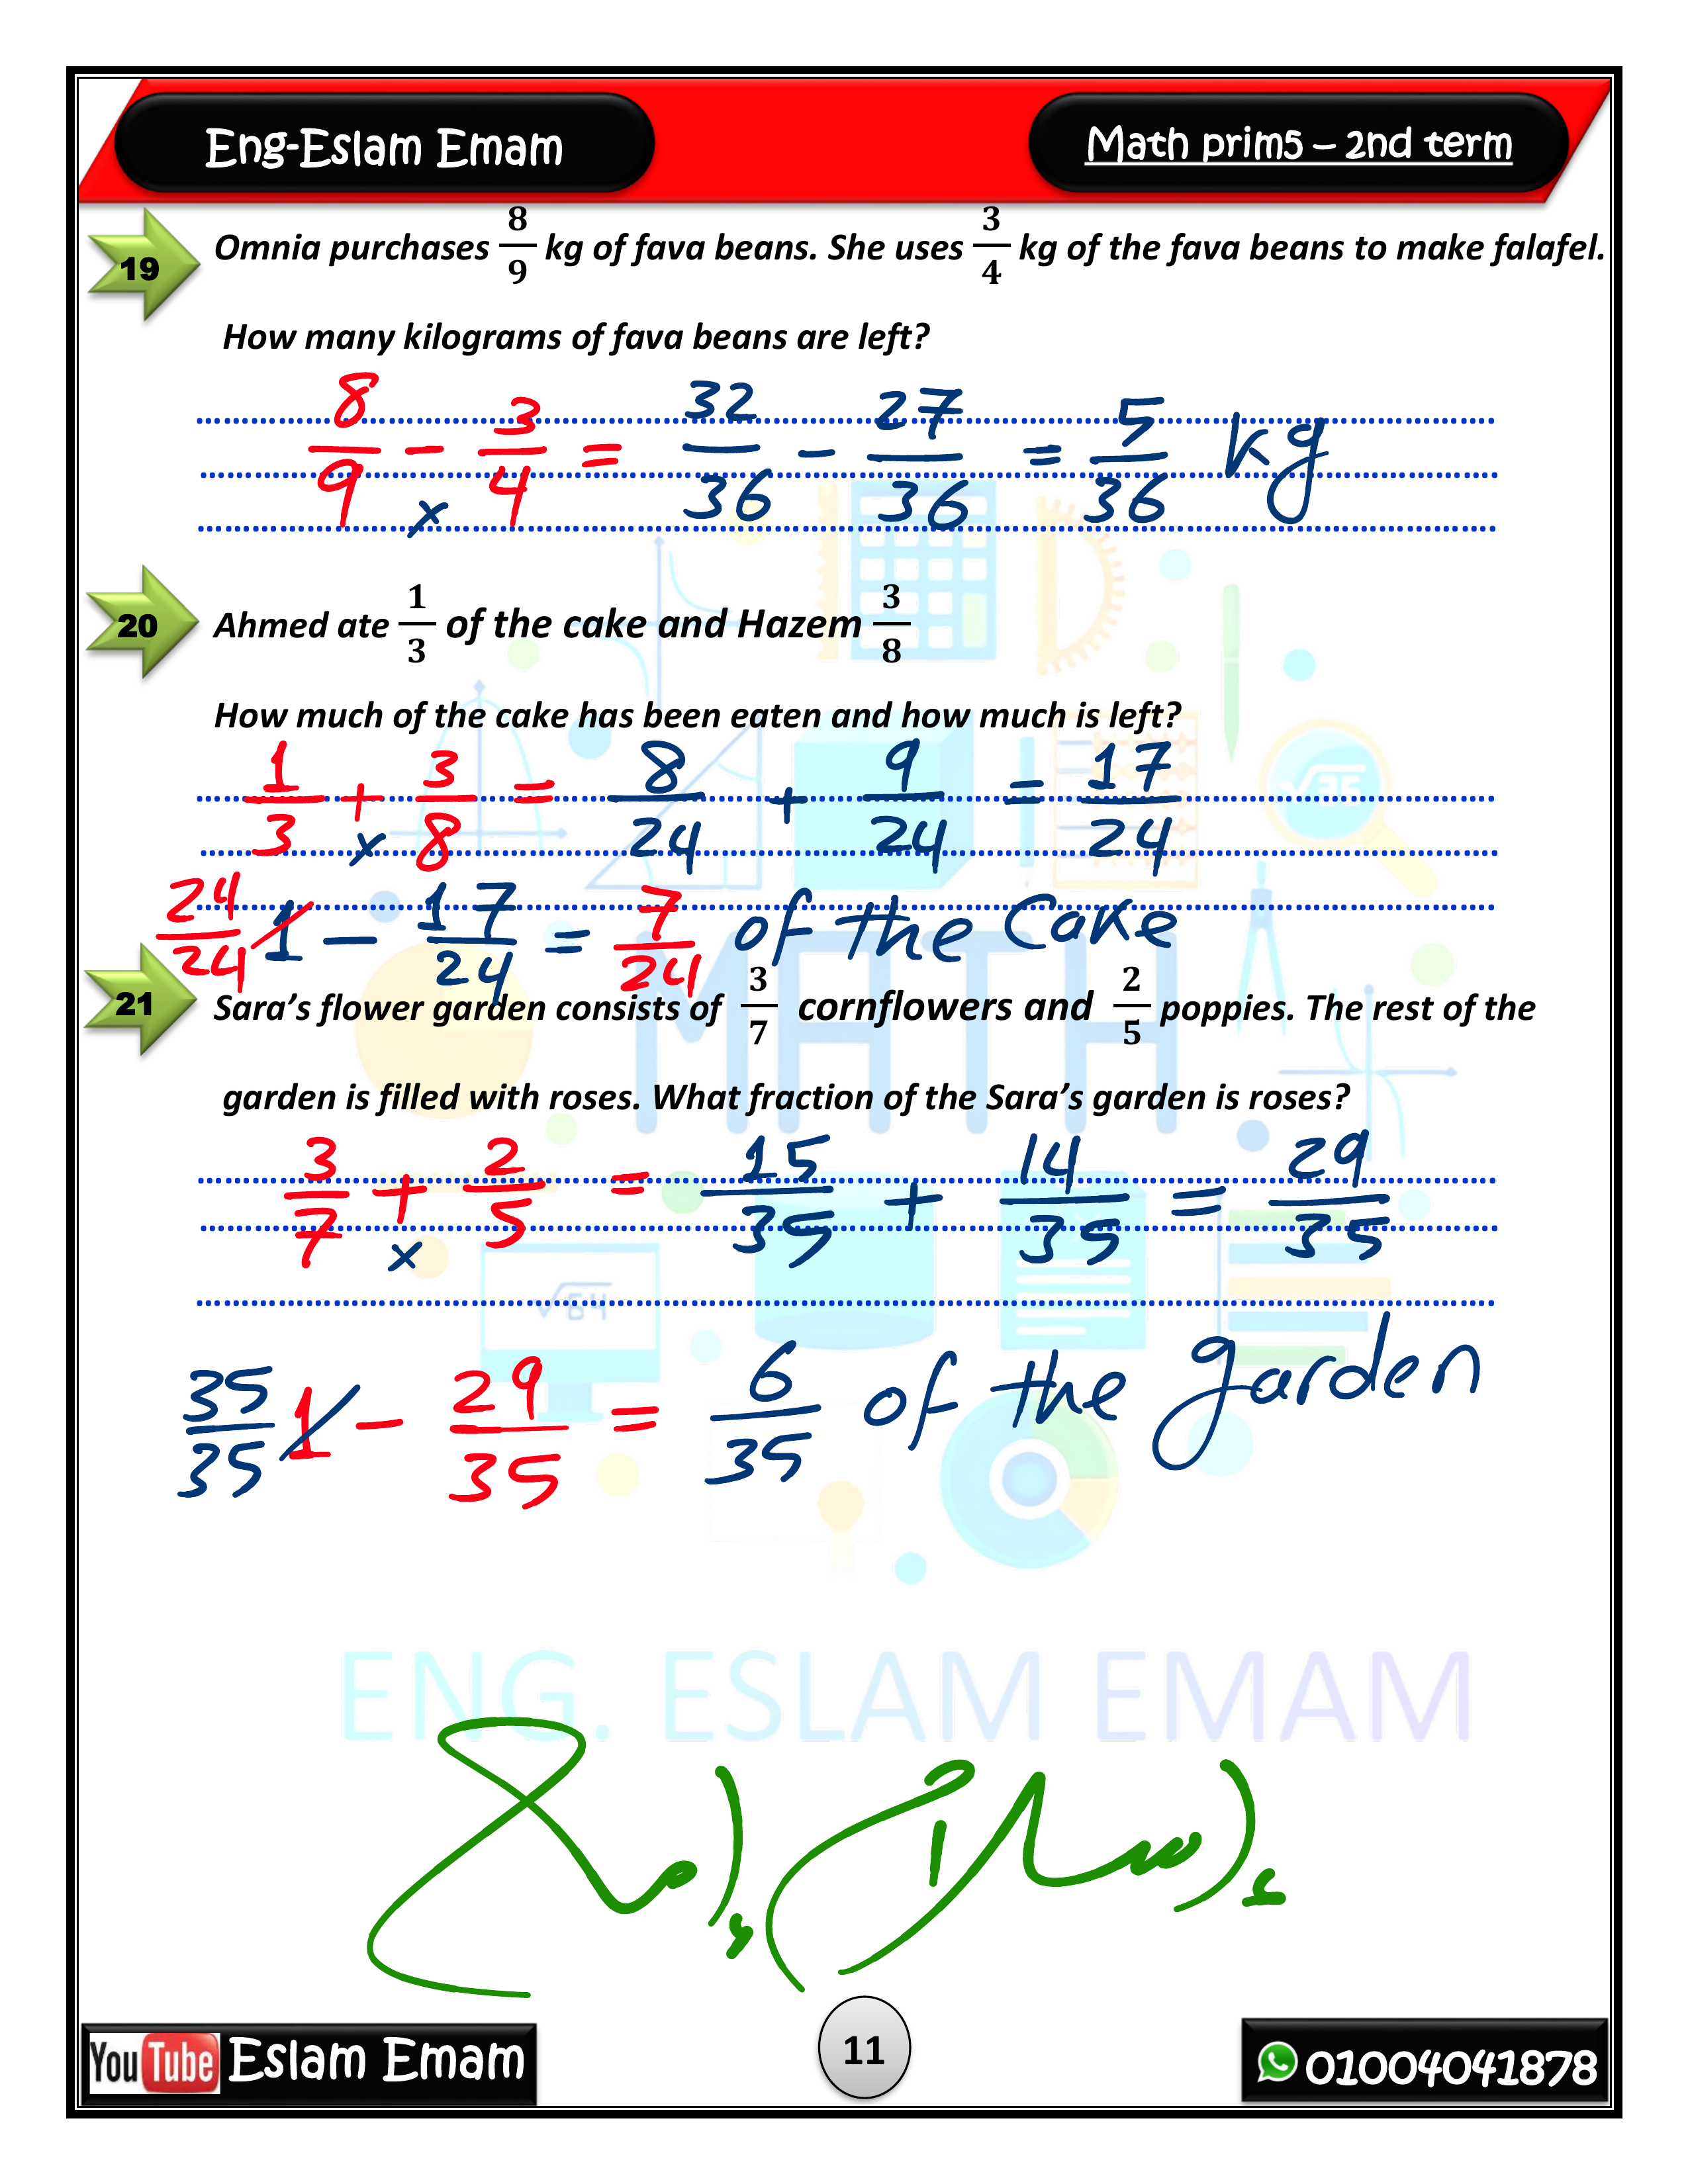 Eng-Eslam Emam
Math prim5 – 2nd term
19 Omnia purchases 8/9 kg of fava beans. She uses 3/4 kg of the fava beans to make falafel.
How many kilograms of fava beans are left?
8/9 - 3/4 = 32/36 - 27/36 = 5/36 kg
x
20 Ahmed ate 1/3 of the cake and Hazem 3/8
How much of the cake has been eaten and how much is left?
1/3 + 3/8 = 8/24 + 9/24 = 17/24
x
24/24 1 - 17/24 = 7/24 of the Cake
21 Sara’s flower garden consists of 3/7 cornflowers and 2/5 poppies. The rest of the
garden is filled with roses. What fraction of the Sara’s garden is roses?
3/7 + 2/5 = 15/35 + 14/35 = 29/35
x
35/35 1 - 29/35 = 6/35 of the garden
MATH
√36
√64
ENG. ESLAM EMAM
YouTube Eslam Emam
11
01004041878